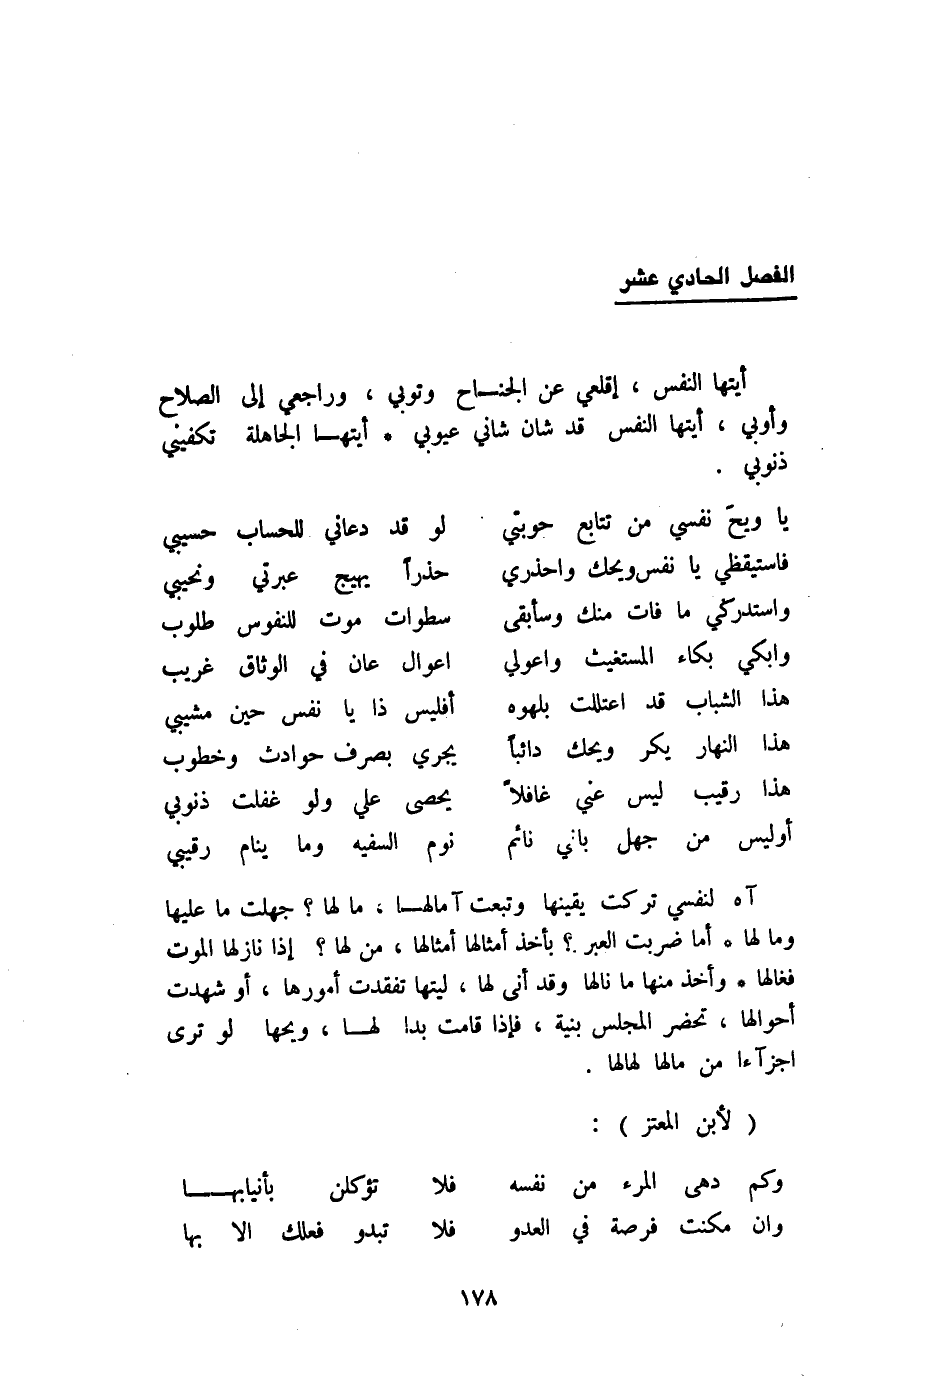 الفصل الحادي عشر
أيتها النفس ، إقلعي عن الجنـــاح وتوبي ، وراجعي إلى الصلاح
وأوبي ، أيتها النفس قد شان شاني عيوبي * أيتهـــا الجاهلة تكفيني
ذنوبي .
يا ويحَ نفسي من تتابع حوبتي لو قد دعاني للحساب حسيبي
فاستيقظي يا نفس ويحك واحذري حذراً يهيج عبرتي ونحيبي
واستدركي ما فات منك وسأبقى سطوات موت للنفوس طلوب
وابكي بكاء المستغيث واعولي اعوال عان في الوثاق غريب
هذا الشباب قد اعتللت بلهوه أفليس ذا يا نفس حين مشيبي
هذا النهار يكر ويحك دائباً يجري بصرف حوادث وخطوب
هذا رقيب ليس عني غافلاً يحصى علي ولو غفلت ذنوبي
أوليس من جهل باني نائم نوم السفيه وما ينام رقيبي
آه لنفسي تركت يقينها وتبعت آمالهـــا ، ما لها ؟ جهلت ما عليها
وما لها * أما ضربت العبر ؟ بأخذ أمثالها أمثالها ، من لها ؟ إذا نازلها الموت
فغالها * وأخذ منها ما نالها وقد أنى لها ، ليتها تفقدت أمورها ، أو شهدت
أحوالها ، تحضر المجلس بنية ، فإذا قامت بدا لهـــا ، ويحها لو ترى
اجزآءا من مالها لهالها .
( لأبن المعتز ) :
وكم دهى المرء من نفسه فلا تؤكلن بأنيابهـــا
وان مكنت فرصة في العدو فلا تبدو فعلك الا بها
١٧٨